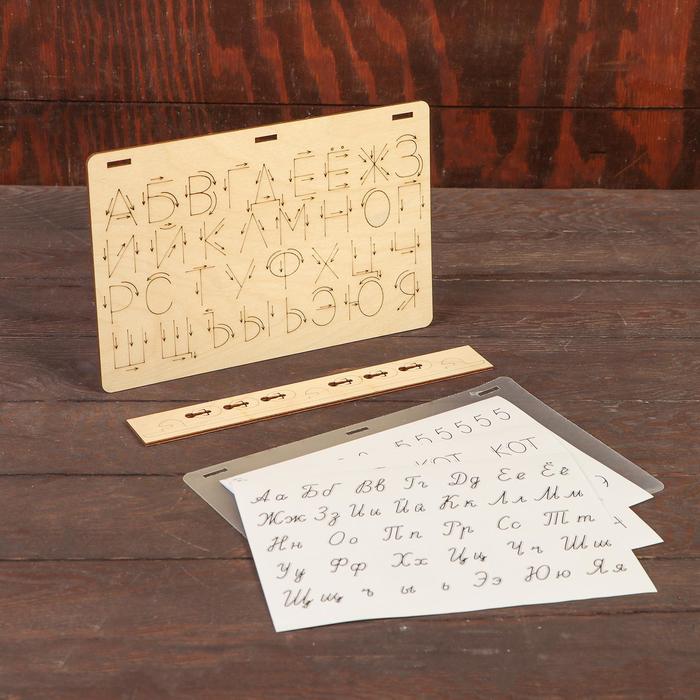 А Б В Г Д Е Ё Ж З
И Й К Л М Н О П
Р С Т У Ф Х Ц Ч
Ш Щ Ъ Ы Ь Э Ю Я
5 5 5 5 5 5
КОТ КОТ
Аа Бб Вв Гг Дд Ее Ёё
Жж Зз Ии Йй Кк Лл Мм
Нн Оо Пп Рр Сс Тт
Уу Фф Хх Цц Чч Шш
Щщ ъ ы ь Ээ Юю Яя